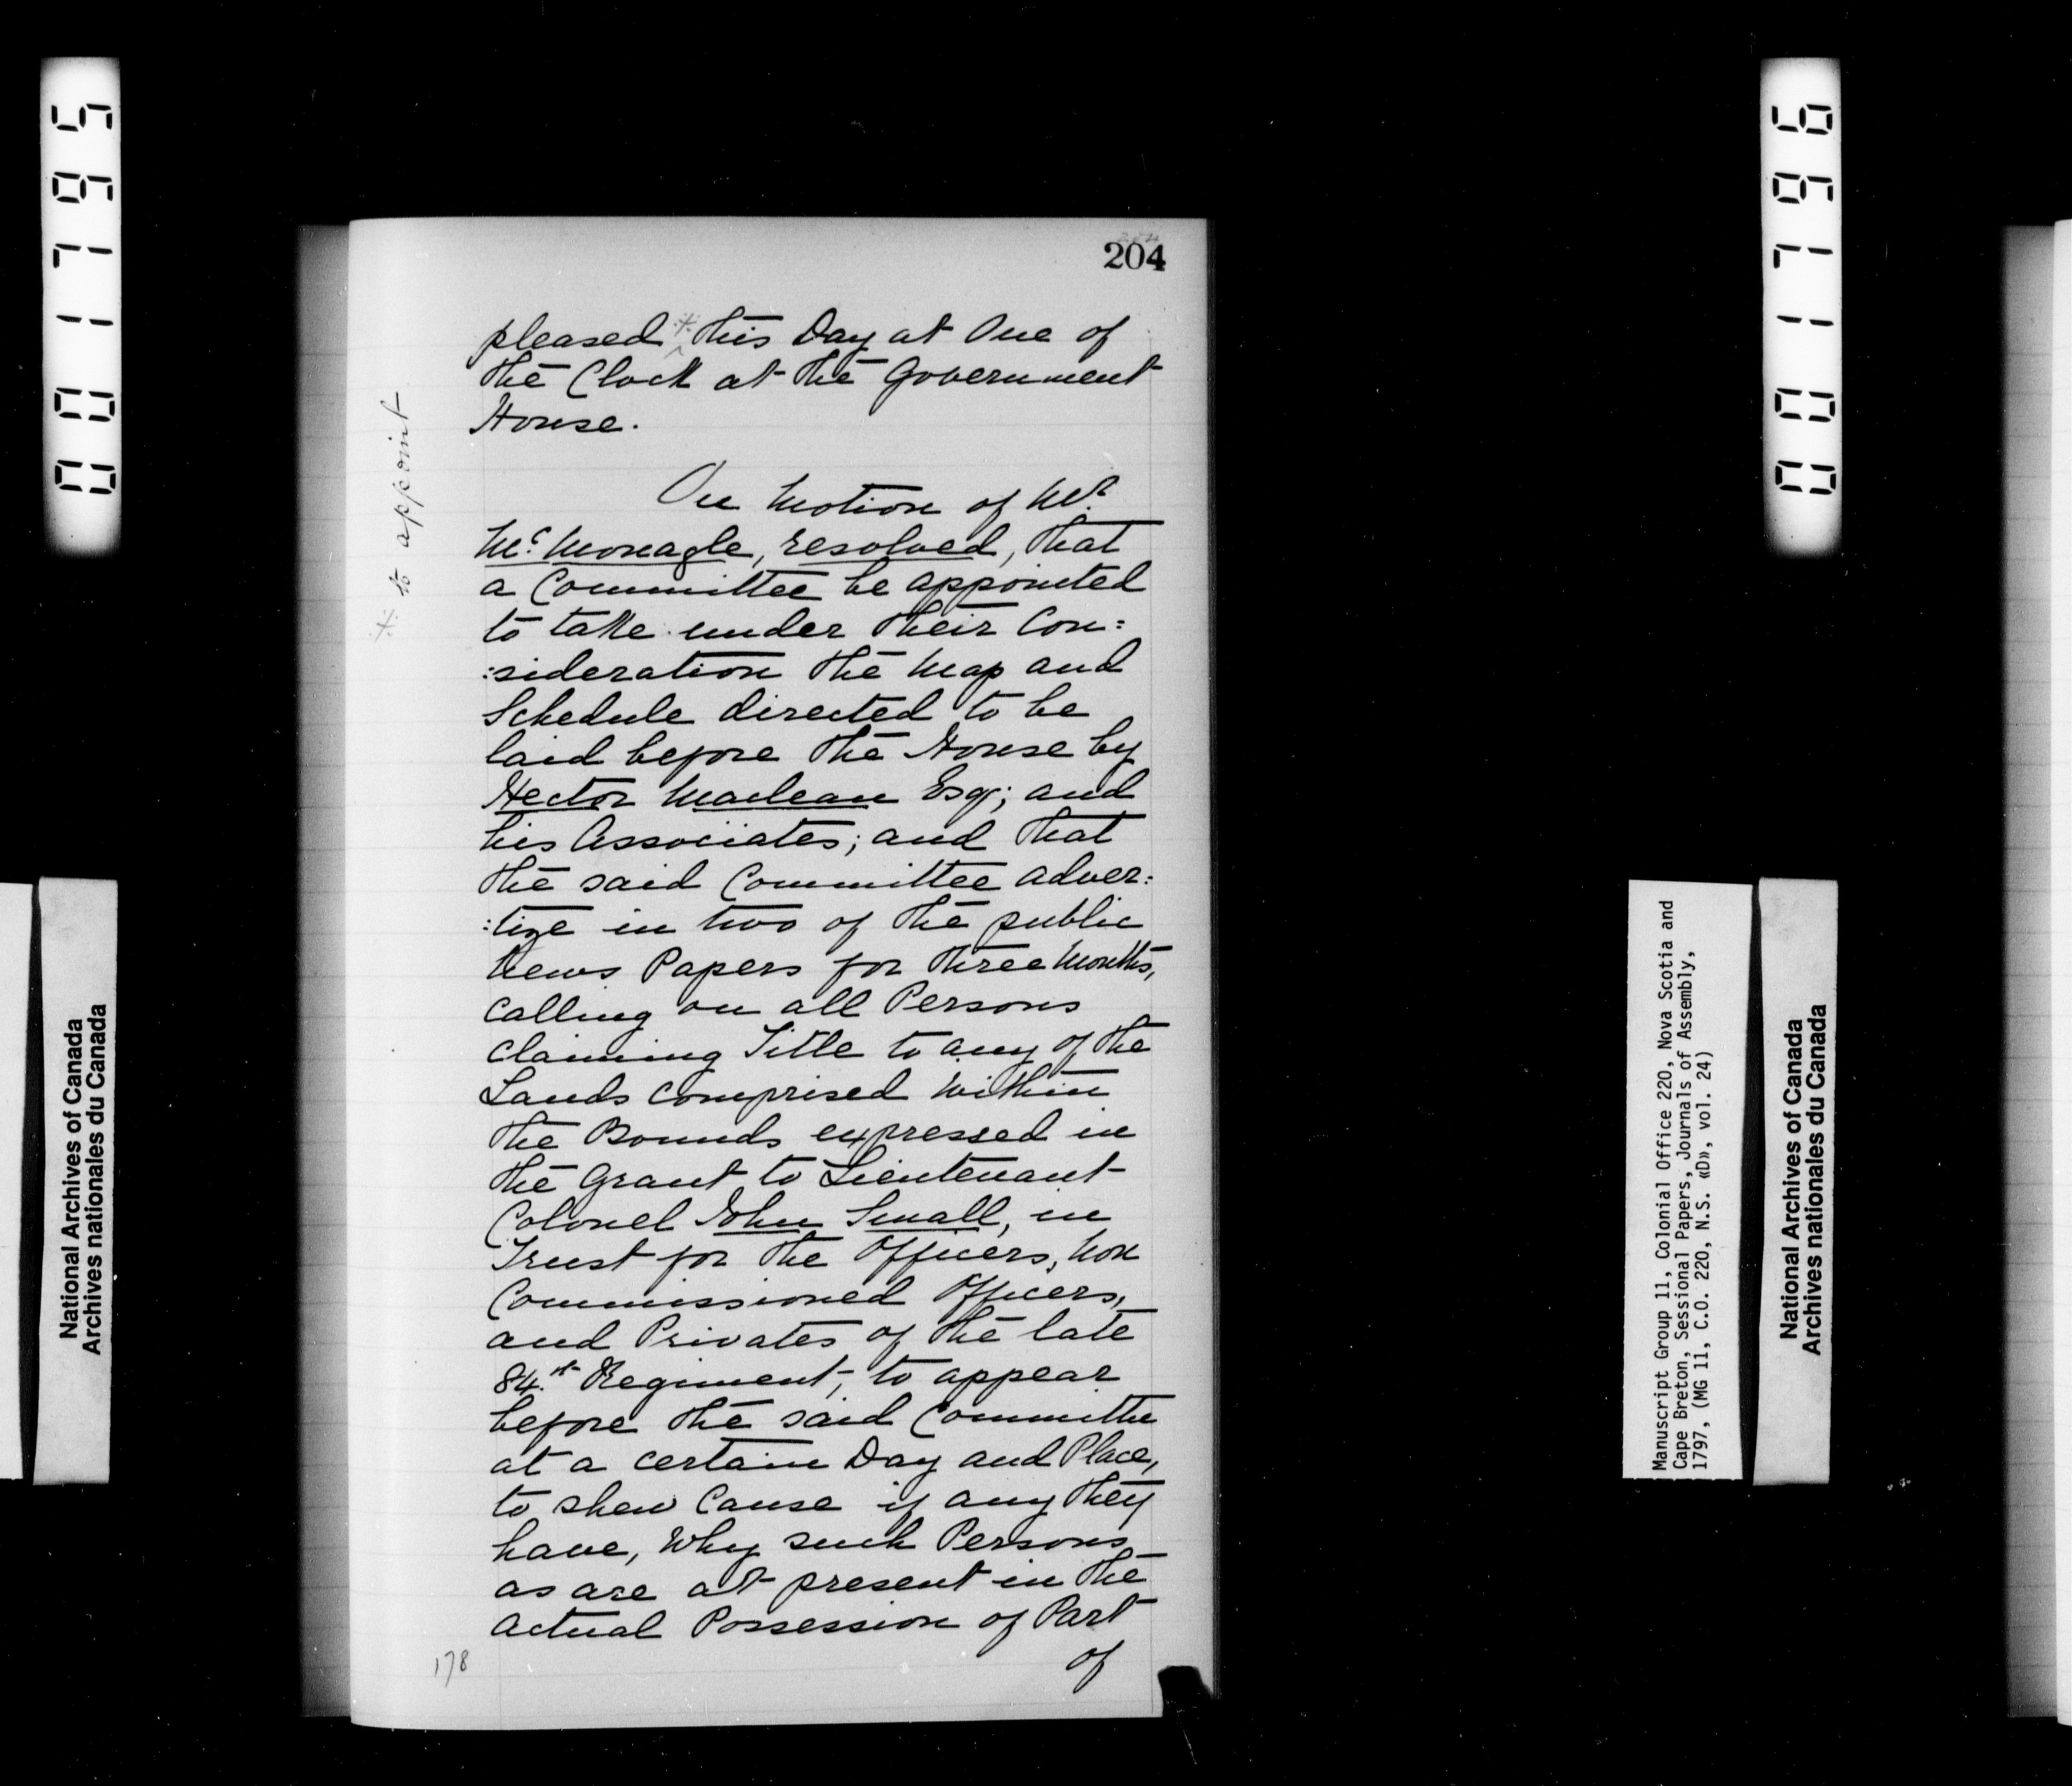 001795
001796
204
pleased ^ * this Day at One of
the Clock at the Government
House.
* to appoint
On Motion of Mr.
Mc. Monagle, resolved, that
a Committee be appointed
to take under their Con:
:sideration the Map and
Schedule directed to be
laid before the House by
Hector Maclean Esqr; and
his Associates; and that
the said Committee adver:
:tize in two of the public
News Papers for three Months,
calling on all Persons
claiming Title to any of the
Lands comprised within
the Bounds expressed in
the Grant to Lieutenant
Colonel John Small, in
Trust for the Officers, Non
Commissioned Officers,
and Privates of the late
84.th Regiment, to appear
before the said Committee
at a certain Day and Place,
to shew Cause if any they
have, Why such Persons
as are at present in the
actual Possession of Part
of
178
National Archives of Canada
Archives nationales du Canada
Manuscript Group 11, Colonial Office 220, Nova Scotia and
Cape Breton, Sessional Papers, Journals of Assembly,
1797, (MG 11, C.O. 220, N.S. «D», vol. 24)
National Archives of Canada
Archives nationales du Canada